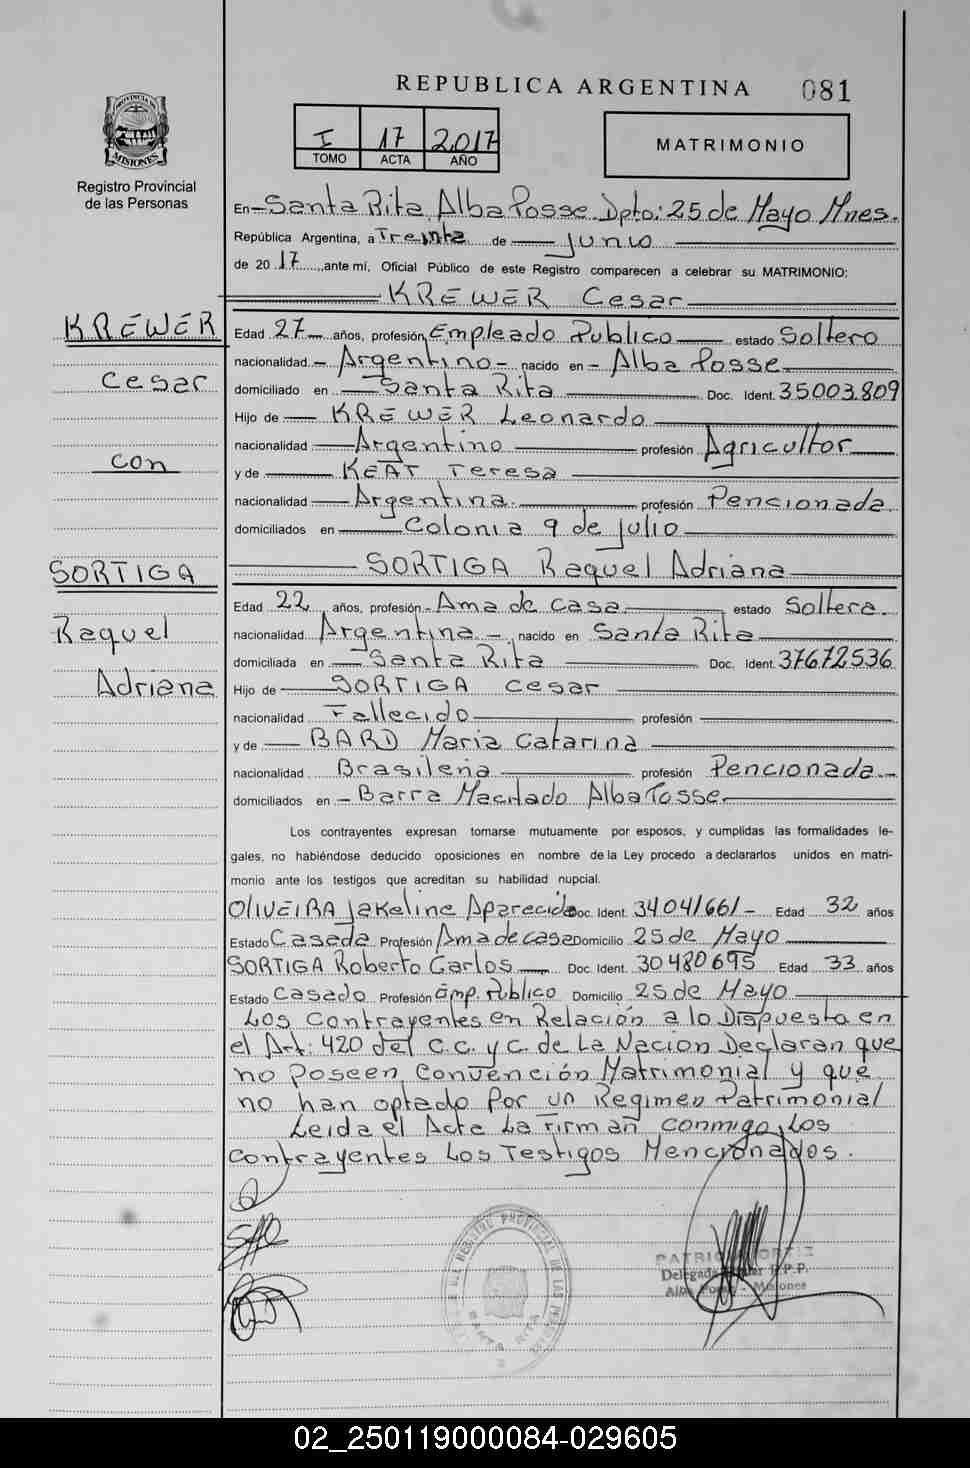 REPUBLICA ARGENTINA 081
PROVINCIA DE
MISIONES
I 17 2017
TOMO ACTA AÑO
MATRIMONIO
Registro Provincial
de las Personas
En Santa Rita, Alba Posse. Dpto: 25 de Mayo Mnes.
República Argentina, a Treinta de Junio
de 2017, ante mí, Oficial Público de este Registro comparecen a celebrar su MATRIMONIO:
KREWER Cesar
KREWER
Cesar
con
SORTIGA
Raquel
Adriana
Edad 27 años, profesión Empleado Publico estado Soltero
nacionalidad Argentino nacido en Alba Posse
domiciliado en Santa Rita Doc. Ident. 35003.809
Hijo de KREWER Leonardo
nacionalidad Argentino profesión Agricultor
y de KEAT Teresa
nacionalidad Argentina profesión Pencionada
domiciliados en Colonia 9 de Julio
SORTIGA Raquel Adriana
Edad 22 años, profesión Ama de casa estado Soltera.
nacionalidad Argentina nacido en Santa Rita
domiciliada en Santa Rita Doc. Ident. 37672536
Hijo de SORTIGA Cesar
nacionalidad Fallecido profesión
y de BARD Maria Catarina
nacionalidad Brasileña profesión Pencionada
domiciliados en Barra Machado Alba Posse
Los contrayentes expresan tomarse mutuamente por esposos, y cumplidas las formalidades le-
gales, no habiéndose deducido oposiciones en nombre de la Ley procedo a declararlos unidos en matri-
monio ante los testigos que acreditan su habilidad nupcial.
OLIVEIRA Jakeline Aparecida Doc. Ident. 34041661 Edad 32 años
Estado Casada Profesión Ama de casa Domicilio 25 de Mayo
SORTIGA Roberto Carlos Doc. Ident. 30480695 Edad 33 años
Estado Casado Profesión Emp. Publico Domicilio 25 de Mayo
Los Contrayentes en Relación a lo Dispuesto en
el Art: 420 del C.C. y C. de La Nacion Declaran que
no Poseen Convención Matrimonial y que
no han optado Por un Regimen Patrimonial
Leida el Acta La Firman conmigo, Los
contrayentes Los Testigos Mencionados.
REGISTRO PROVINCIAL DE LAS
SANTA RITA
ORTIZ
Delegada R.P.P.
Alba Posse - Misiones
02_250119000084-029605